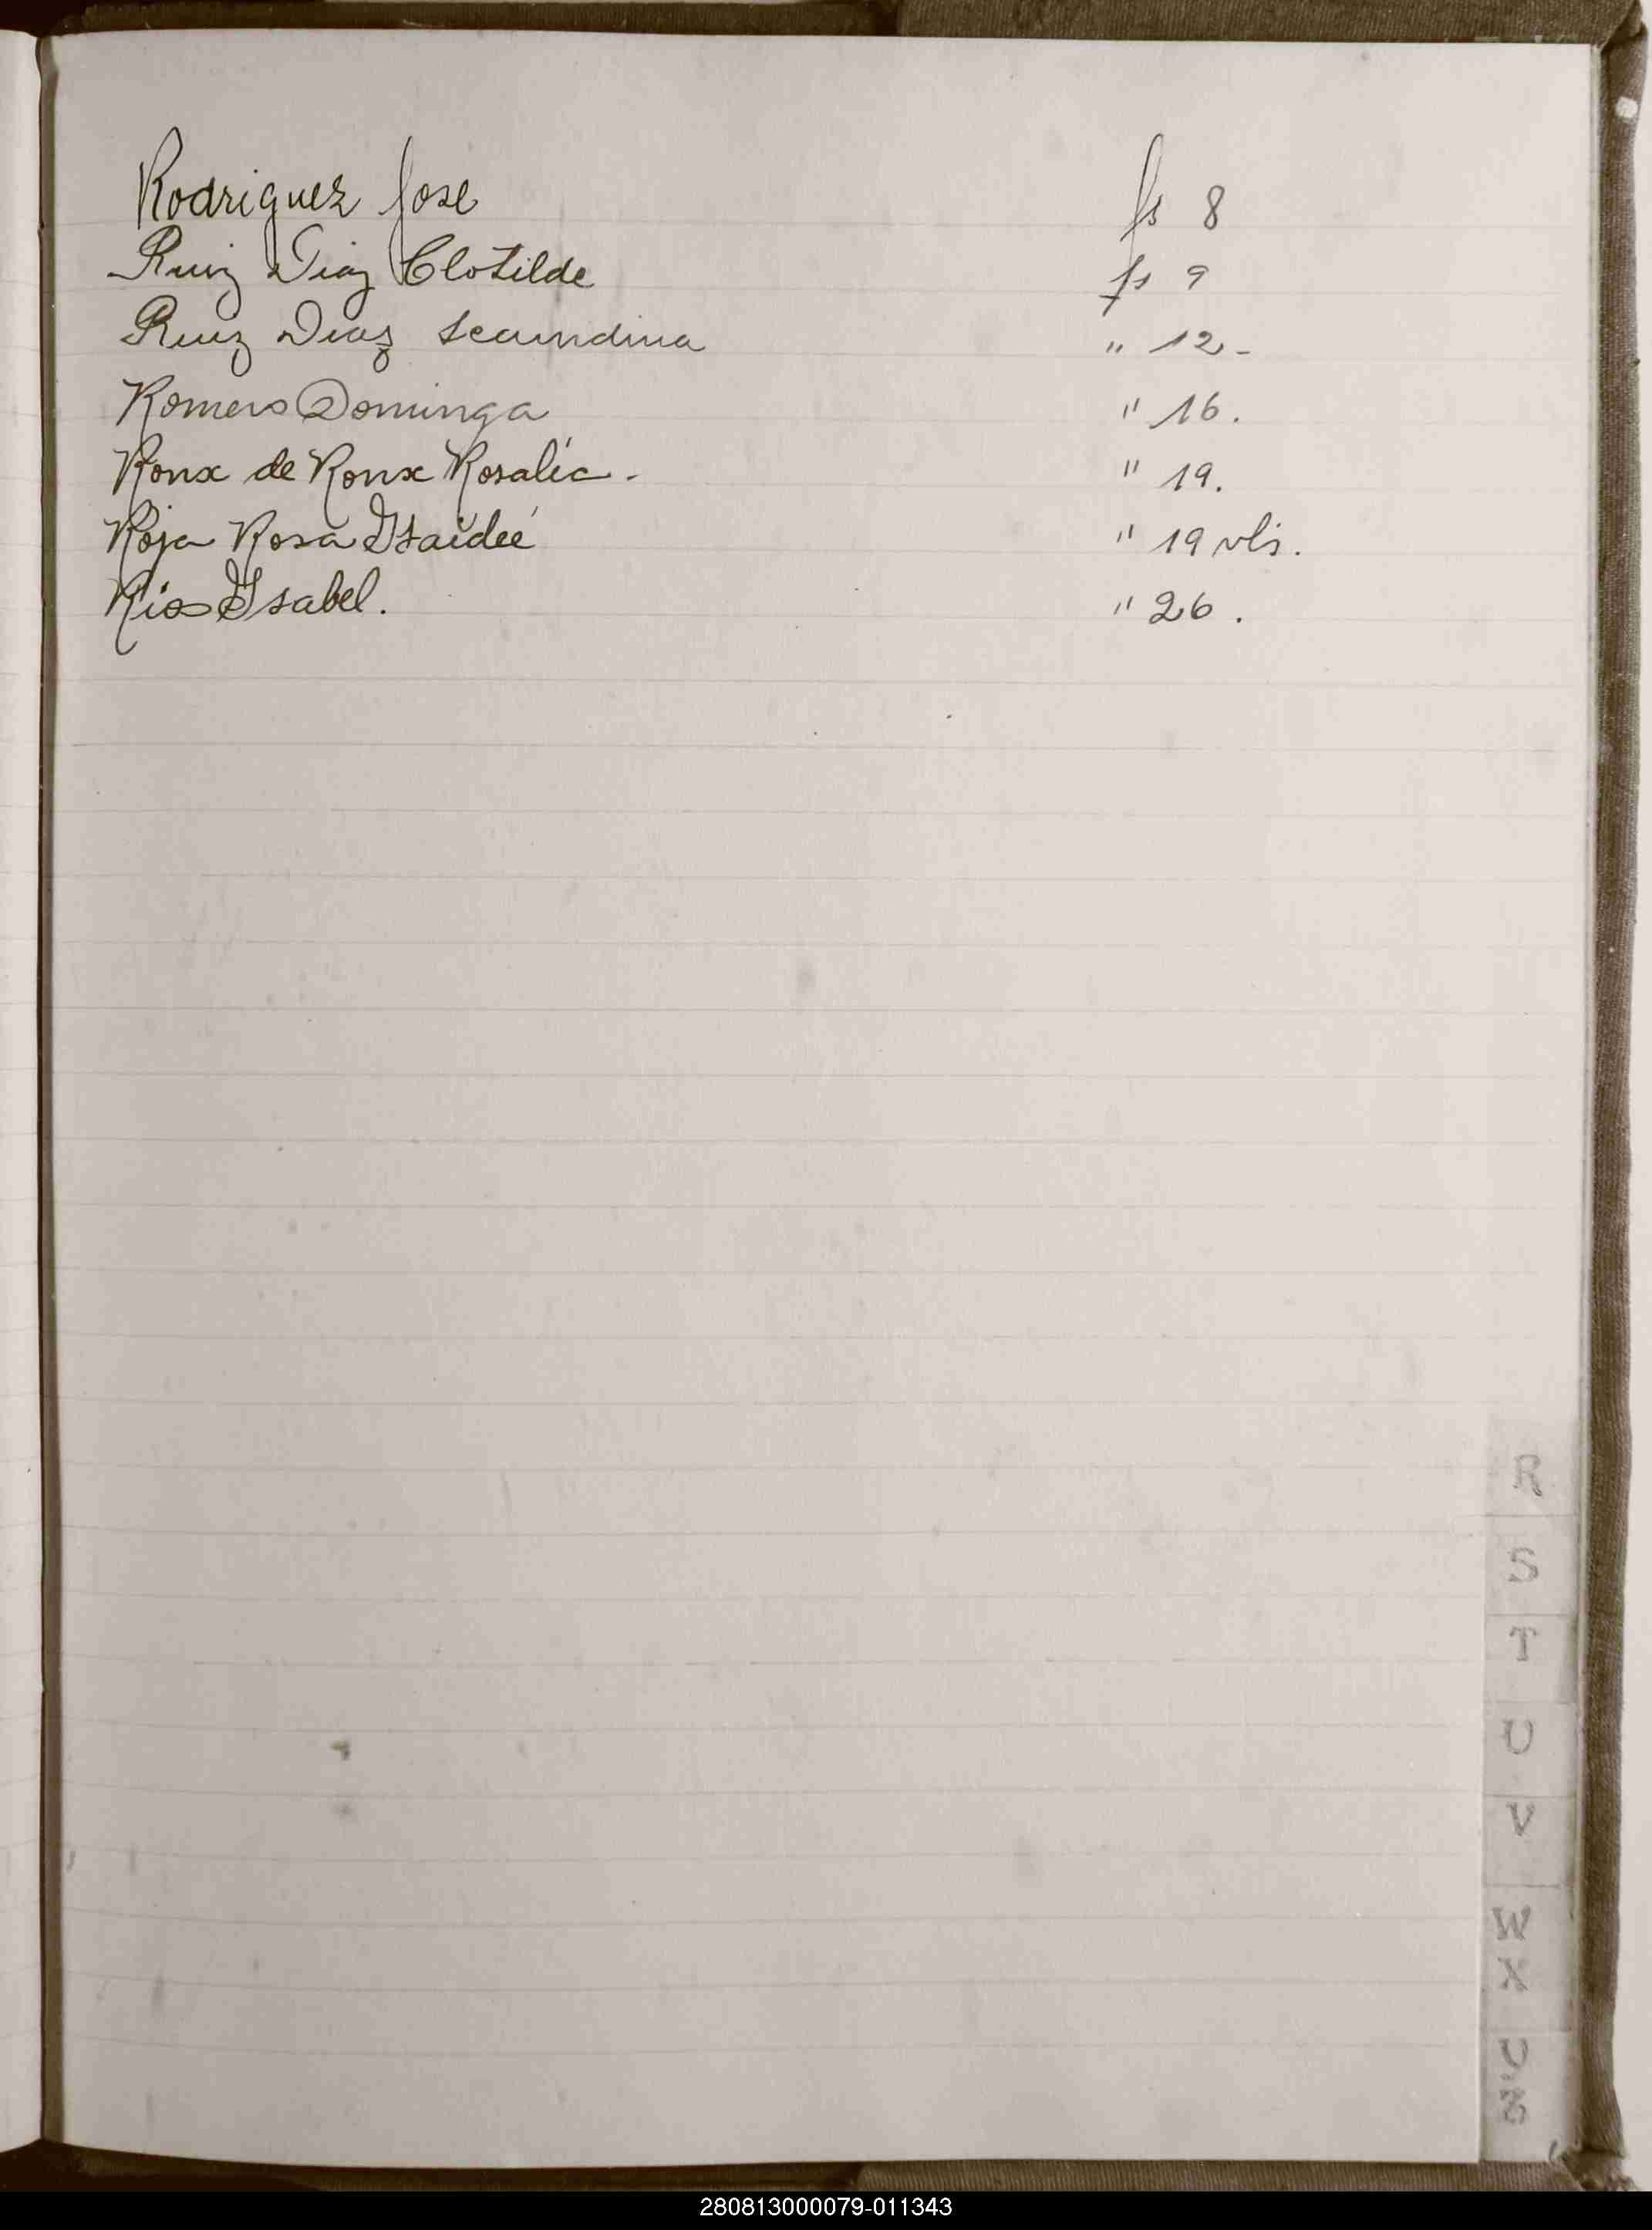 Rodriguez Jose fs 8
Ruiz Diaz Clotilde fs 9
Ruiz Diaz Secundina " 12-
Romero Dominga " 16.
Roux de Roux Rosalía - " 19.
Roja Rosa Haidée " 19 vls.
Rios Ysabel. " 26.
R
S
T
U
V
W
X
280813000079-011343